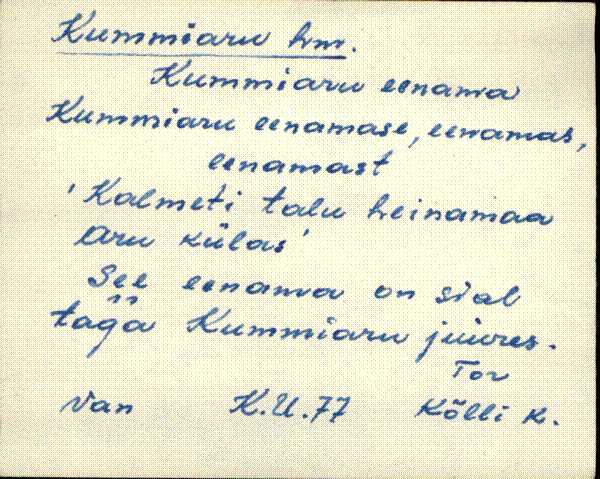 Kummiaru hm.
Kummiaru eenama
Kummiaru eenamase, eenamas,
eenamast
'Kalmeti talu heinamaa
Aru külas'
See eenama on sial
tagä Kummiaru juures.
Tor
Van K.U.77 Kõlli k.